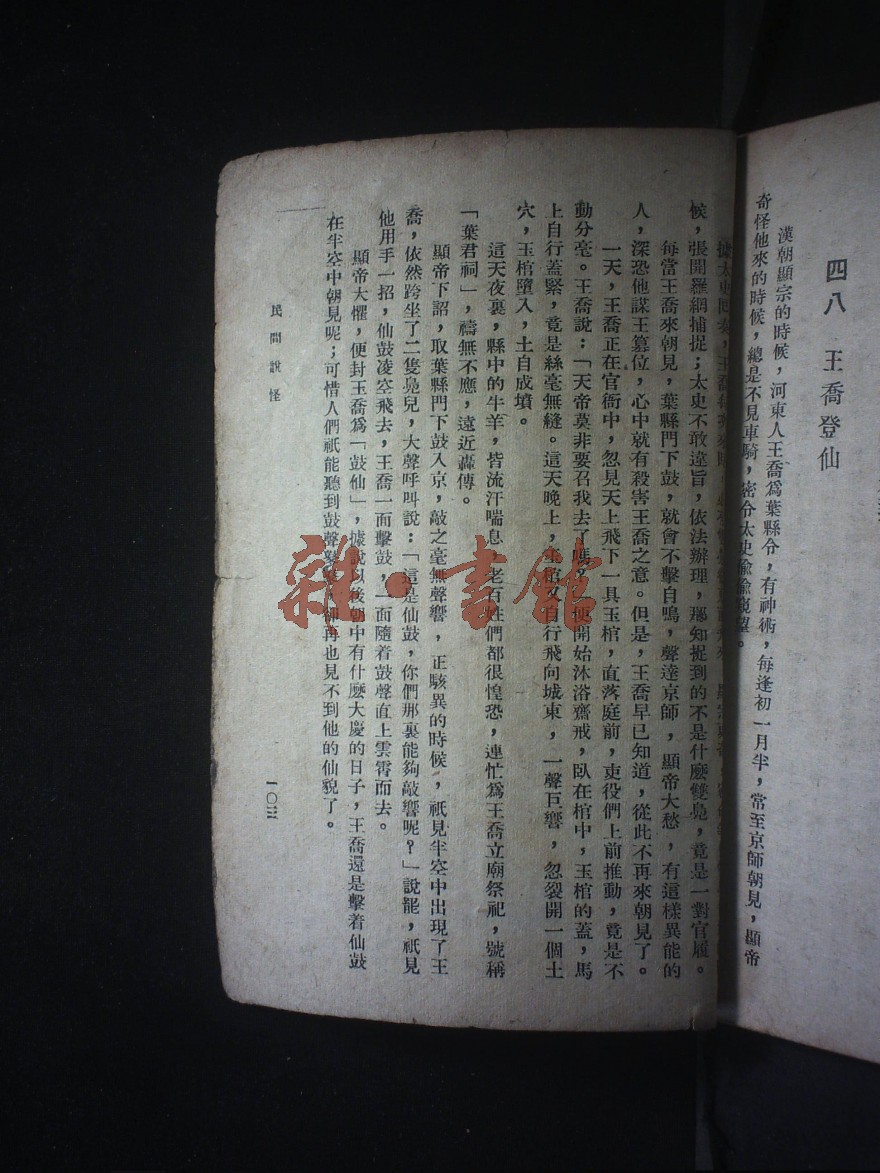 四八　王喬登仙
漢朝顯宗的時候，河東人王喬爲葉縣令，有神術，每逢初一月半，常至京師朝見，顯帝
奇怪他來的時候，總是不見車騎，密令太史偷偷窺望。
據太史回奏，王喬
候，張開羅網捕捉；太史不敢違旨，依法辦理，那知捉到的不是什麼雙鳧，竟是一對官履。
每當王喬來朝見，葉縣門下鼓，就會不擊自鳴，聲達京師，顯帝大愁，有這樣異能的
人，深恐他謀王篡位，心中就有殺害王喬之意。但是，王喬早已知道，從此不再來朝見了。
一天，王喬正在官衙中，忽見天上飛下一具玉棺，直落庭前，吏役們上前推動，竟是不
動分毫。王喬說：「天帝莫非要召我去了嗎？」便開始沐浴齋戒，臥在棺中，玉棺的蓋，馬
上自行蓋緊，竟是絲毫無縫。這天晚上，玉棺又自行飛向城東，一聲巨響，忽裂開一個土
穴，玉棺墮入，土自成墳。
這天夜裏，縣中的牛羊，皆流汗喘息，老百姓們都很惶恐，連忙爲王喬立廟祭祀，號稱
「葉君祠」，禱無不應，遠近轟傳。
顯帝下詔，取葉縣門下鼓入京，敲之毫無聲響，正駭異的時候，祇見半空中出現了王
喬，依然跨坐了二隻鳧兒，大聲呼叫說：「這是仙鼓，你們那裏能夠敲響呢？」說罷，祇見
他用手一招，仙鼓凌空飛去，王喬一面擊鼓，一面隨着鼓聲直上雲霄而去。
顯帝大懼，便封王喬爲「鼓仙」，據說以後朝中有什麼大慶的日子，王喬還是擊着仙鼓
在半空中朝見呢；可惜人們祇能聽到鼓聲鼕鼕，卻再也見不到他的仙貌了。
民間說怪
一〇三
雜·書館